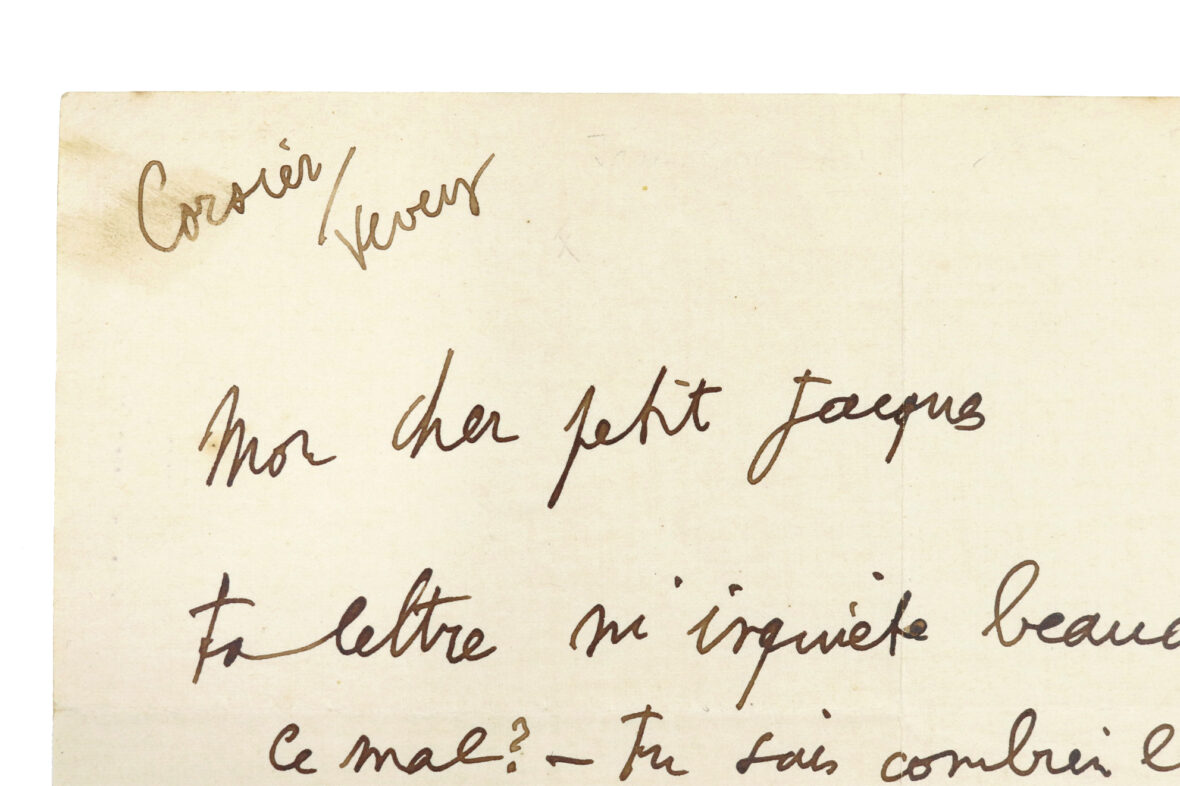 Corsier/Vevey
Mon cher petit Jacques
ta lettre m'inquiète beauc
ce mal? – Tu sais combien l